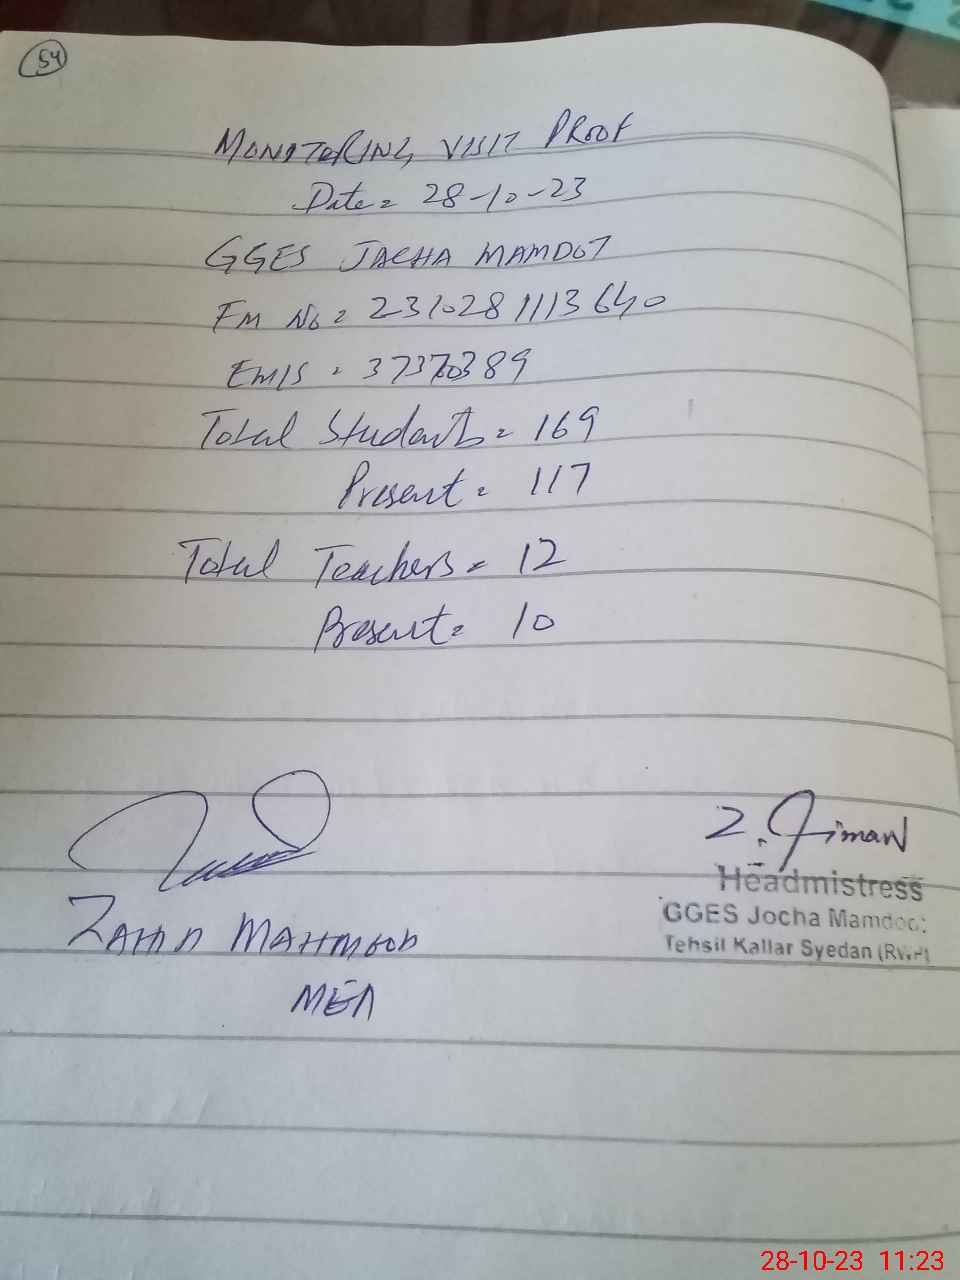 54
MONITORING VISIT PROOF
Date = 28-10-23
GGES JACHA MAMDOT
FM No = 231028 1113 640
EMIS = 37370389
Total Students = 169
Present = 117
Total Teachers = 12
Present = 10
Z. Jiman
Headmistress
GGES Jocha Mamdoot
Tehsil Kallar Syedan (RWP)
ZAHID MAHMOOD
MEA
28-10-23 11:23